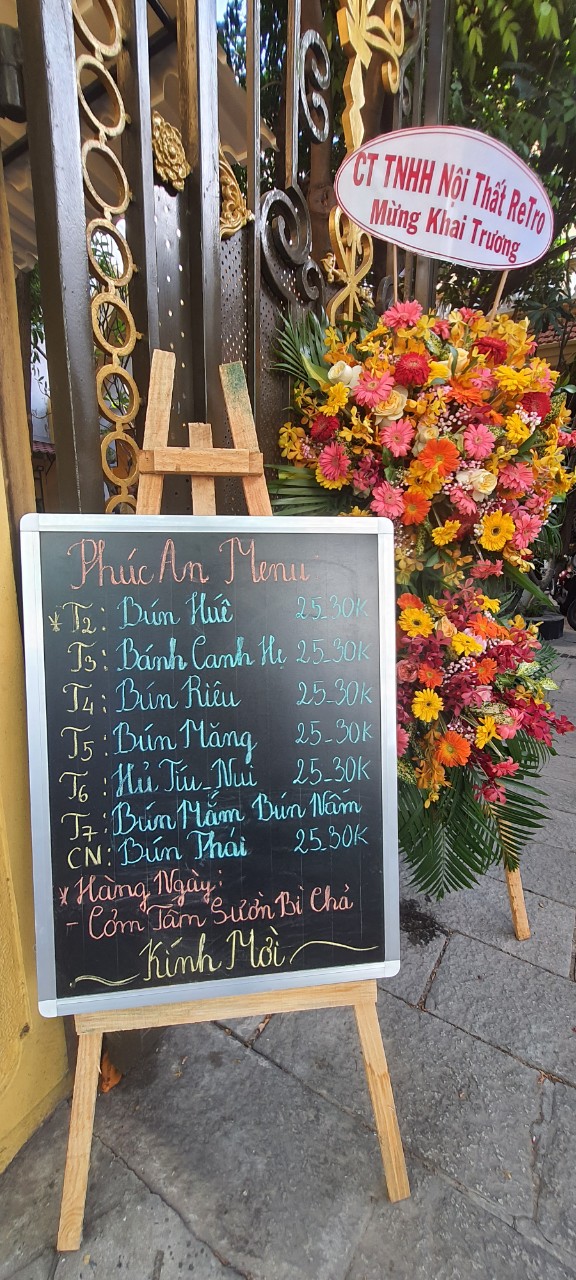 CT TNHH Nội Thất ReTro
Mừng Khai Trương
Phúc An Menu
* T2: Bún Huế 25_30K
T3: Bánh Canh Hẹ 25_30K
T4: Bún Riêu 25_30K
T5: Bún Măng 25_30K
T6: Hủ Tíu_Nui 25_30K
T7: Bún Mắm Bún Nấm
CN: Bún Thái 25_30K
* Hàng Ngày:
- Cơm Tấm Sườn Bì Chả
Kính Mời